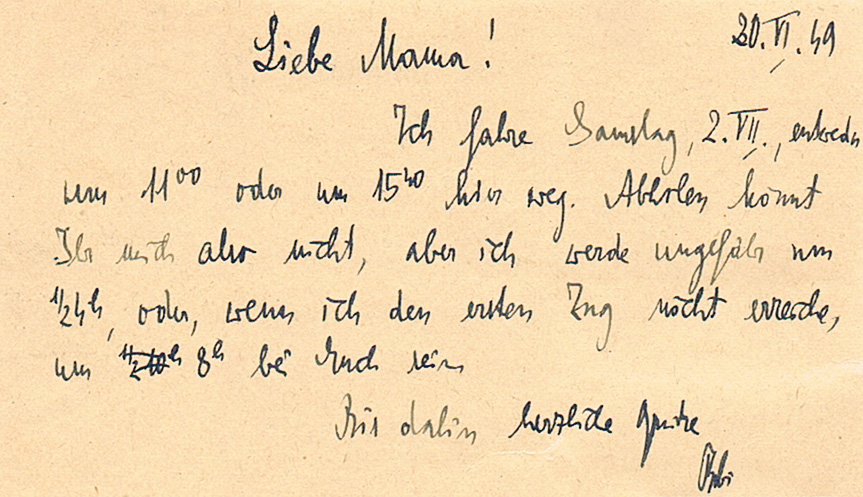 20.VI.49
Liebe Mama!
Ich fahre Samstag, 2.VII., entweder
um 11⁰⁰ oder um 15⁴⁰ hier weg. Abholen könnt
Ihr mich also nicht, aber ich werde ungefähr um
1/2 4h, oder, wenn ich den ersten Zug nicht erreiche,
um 8h bei Euch sein
Bis dahin herzliche Grüße